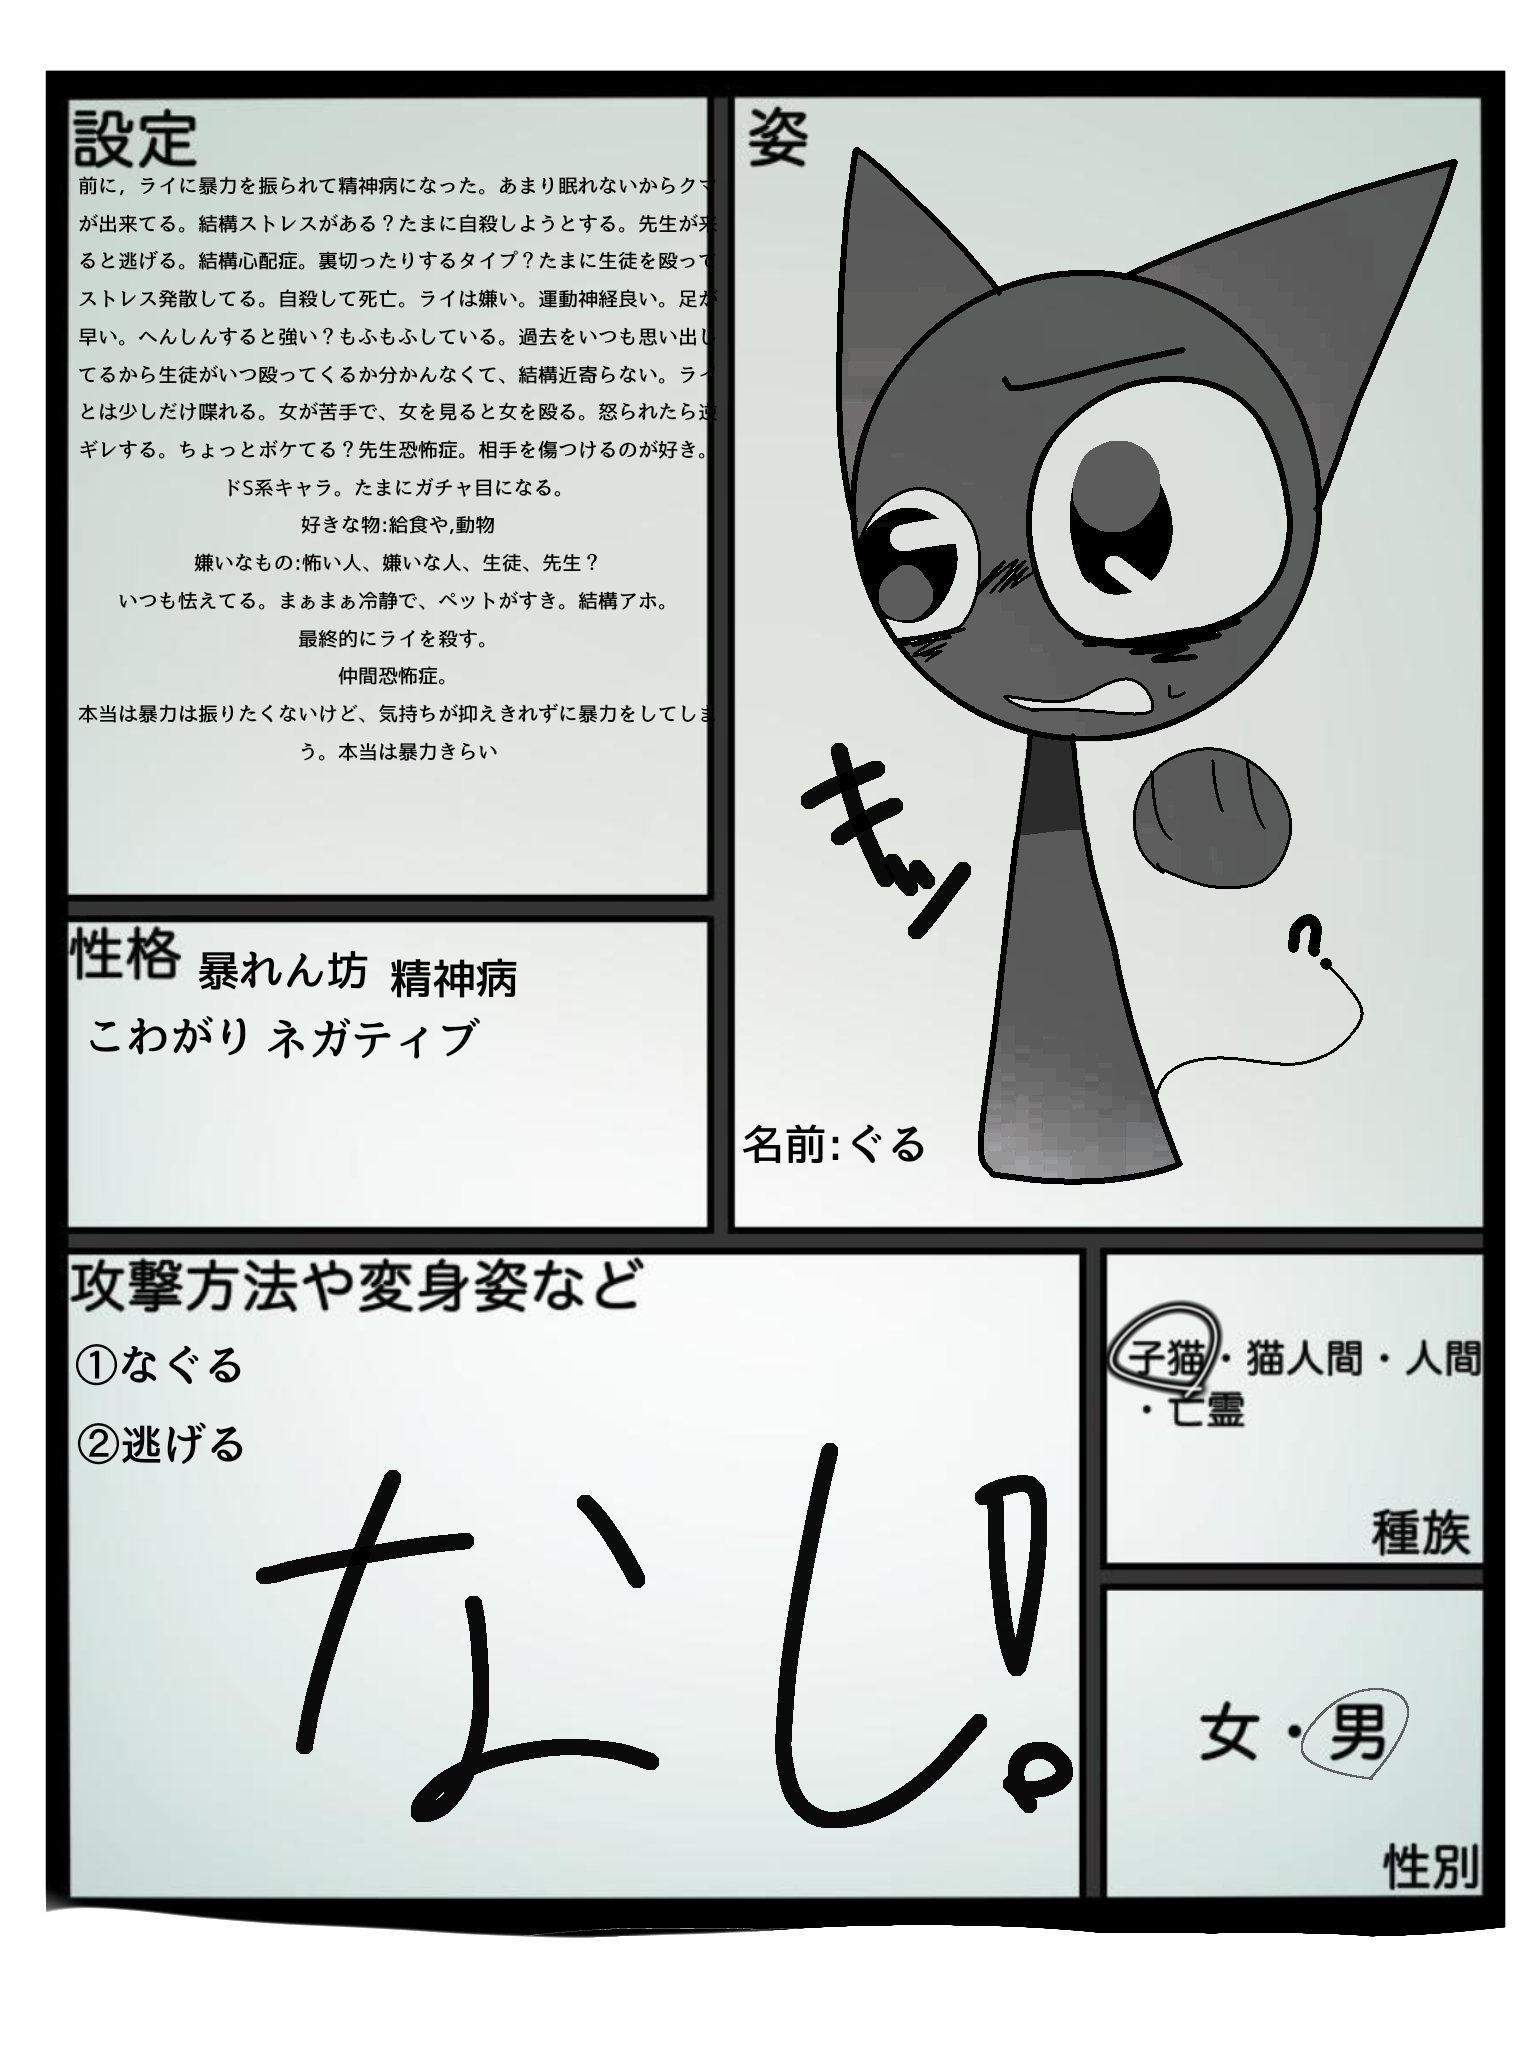 設定
前に，ライに暴力を振られて精神病になった。あまり眠れないからクマ
が出来てる。結構ストレスがある？たまに自殺しようとする。先生が来
ると逃げる。結構心配症。裏切ったりするタイプ？たまに生徒を殴って
ストレス発散してる。自殺して死亡。ライは嫌い。運動神経良い。足が
早い。へんしんすると強い？もふもふしている。過去をいつも思い出し
てるから生徒がいつ殴ってくるか分かんなくて、結構近寄らない。ライ
とは少しだけ喋れる。女が苦手で、女を見ると女を殴る。怒られたら逆
ギレする。ちょっとボケてる？先生恐怖症。相手を傷つけるのが好き。
ドS系キャラ。たまにガチャ目になる。
好きな物:給食や,動物
嫌いなもの:怖い人、嫌いな人、生徒、先生？
いつも怯えてる。まぁまぁ冷静で、ペットがすき。結構アホ。
最終的にライを殺す。
仲間恐怖症。
本当は暴力は振りたくないけど、気持ちが抑えきれずに暴力をしてしま
う。本当は暴力きらい
姿
キッ
?
名前:ぐる
性格 暴れん坊 精神病
こわがり ネガティブ
攻撃方法や変身姿など
①なぐる
②逃げる
なし!
子猫・猫人間・人間
・亡霊
種族
女・男
性別